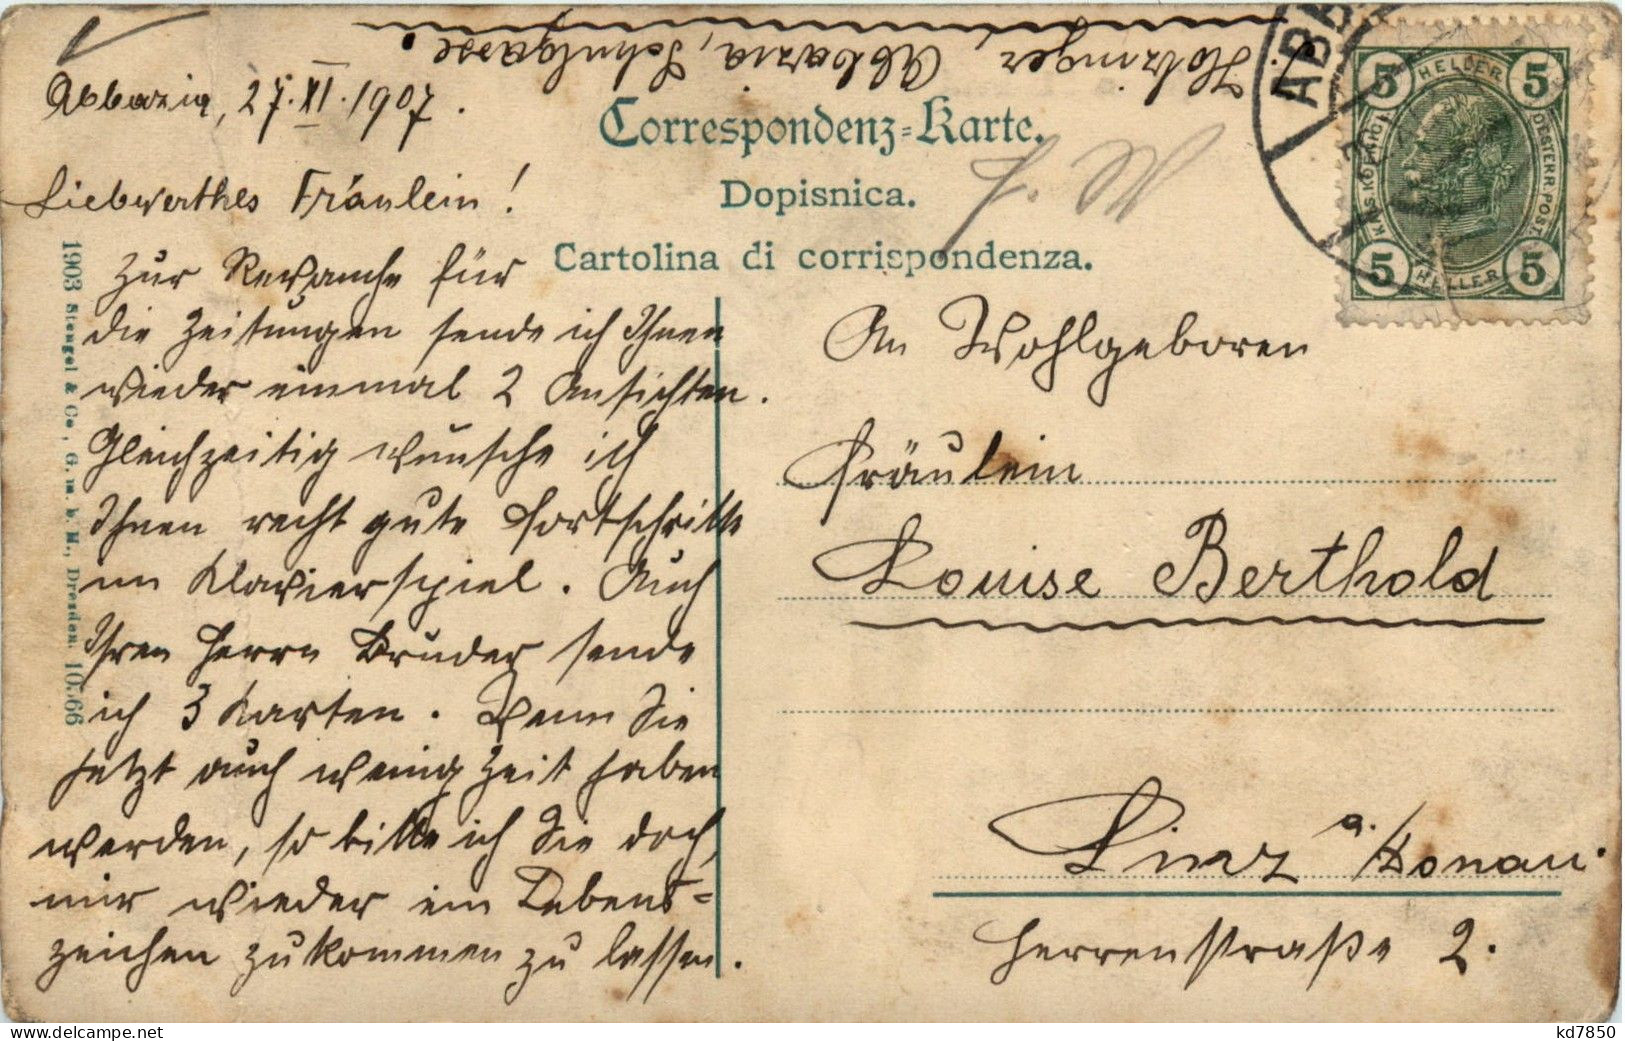 Holzinger Abbazia, Schulgasse.
Abbazia, 27. XI. 1907.
Correspondenz-Karte.
Dopisnica.
Cartolina di corrispondenza.
Liebwerthes Fräulein!
Zur Revanche für
die Zeitungen sende ich Ihnen
wieder einmal 2 Ansichten.
Gleichzeitig wünsche ich
Ihnen recht gute Fortschritte
im Klavierspiel. Auch
Ihren Herrn Bruder sende
ich 3 Karten. Wenn Sie
jetzt auch wenig Zeit haben
werden, so bitte ich Sie doch,
mir wieder ein Lebens-
zeichen zukommen zu lassen.
An Wohlgeboren
Fräulein
Louise Berthold
Linz a./Donau.
Herrenstraße 2.
1903 Stengel & Co., G. m. b. H., Dresden. 10566
ABB
5 HELLER 5
KAIS. KOENIGL. OESTERR. POST
5 HELLER 5
kd7850